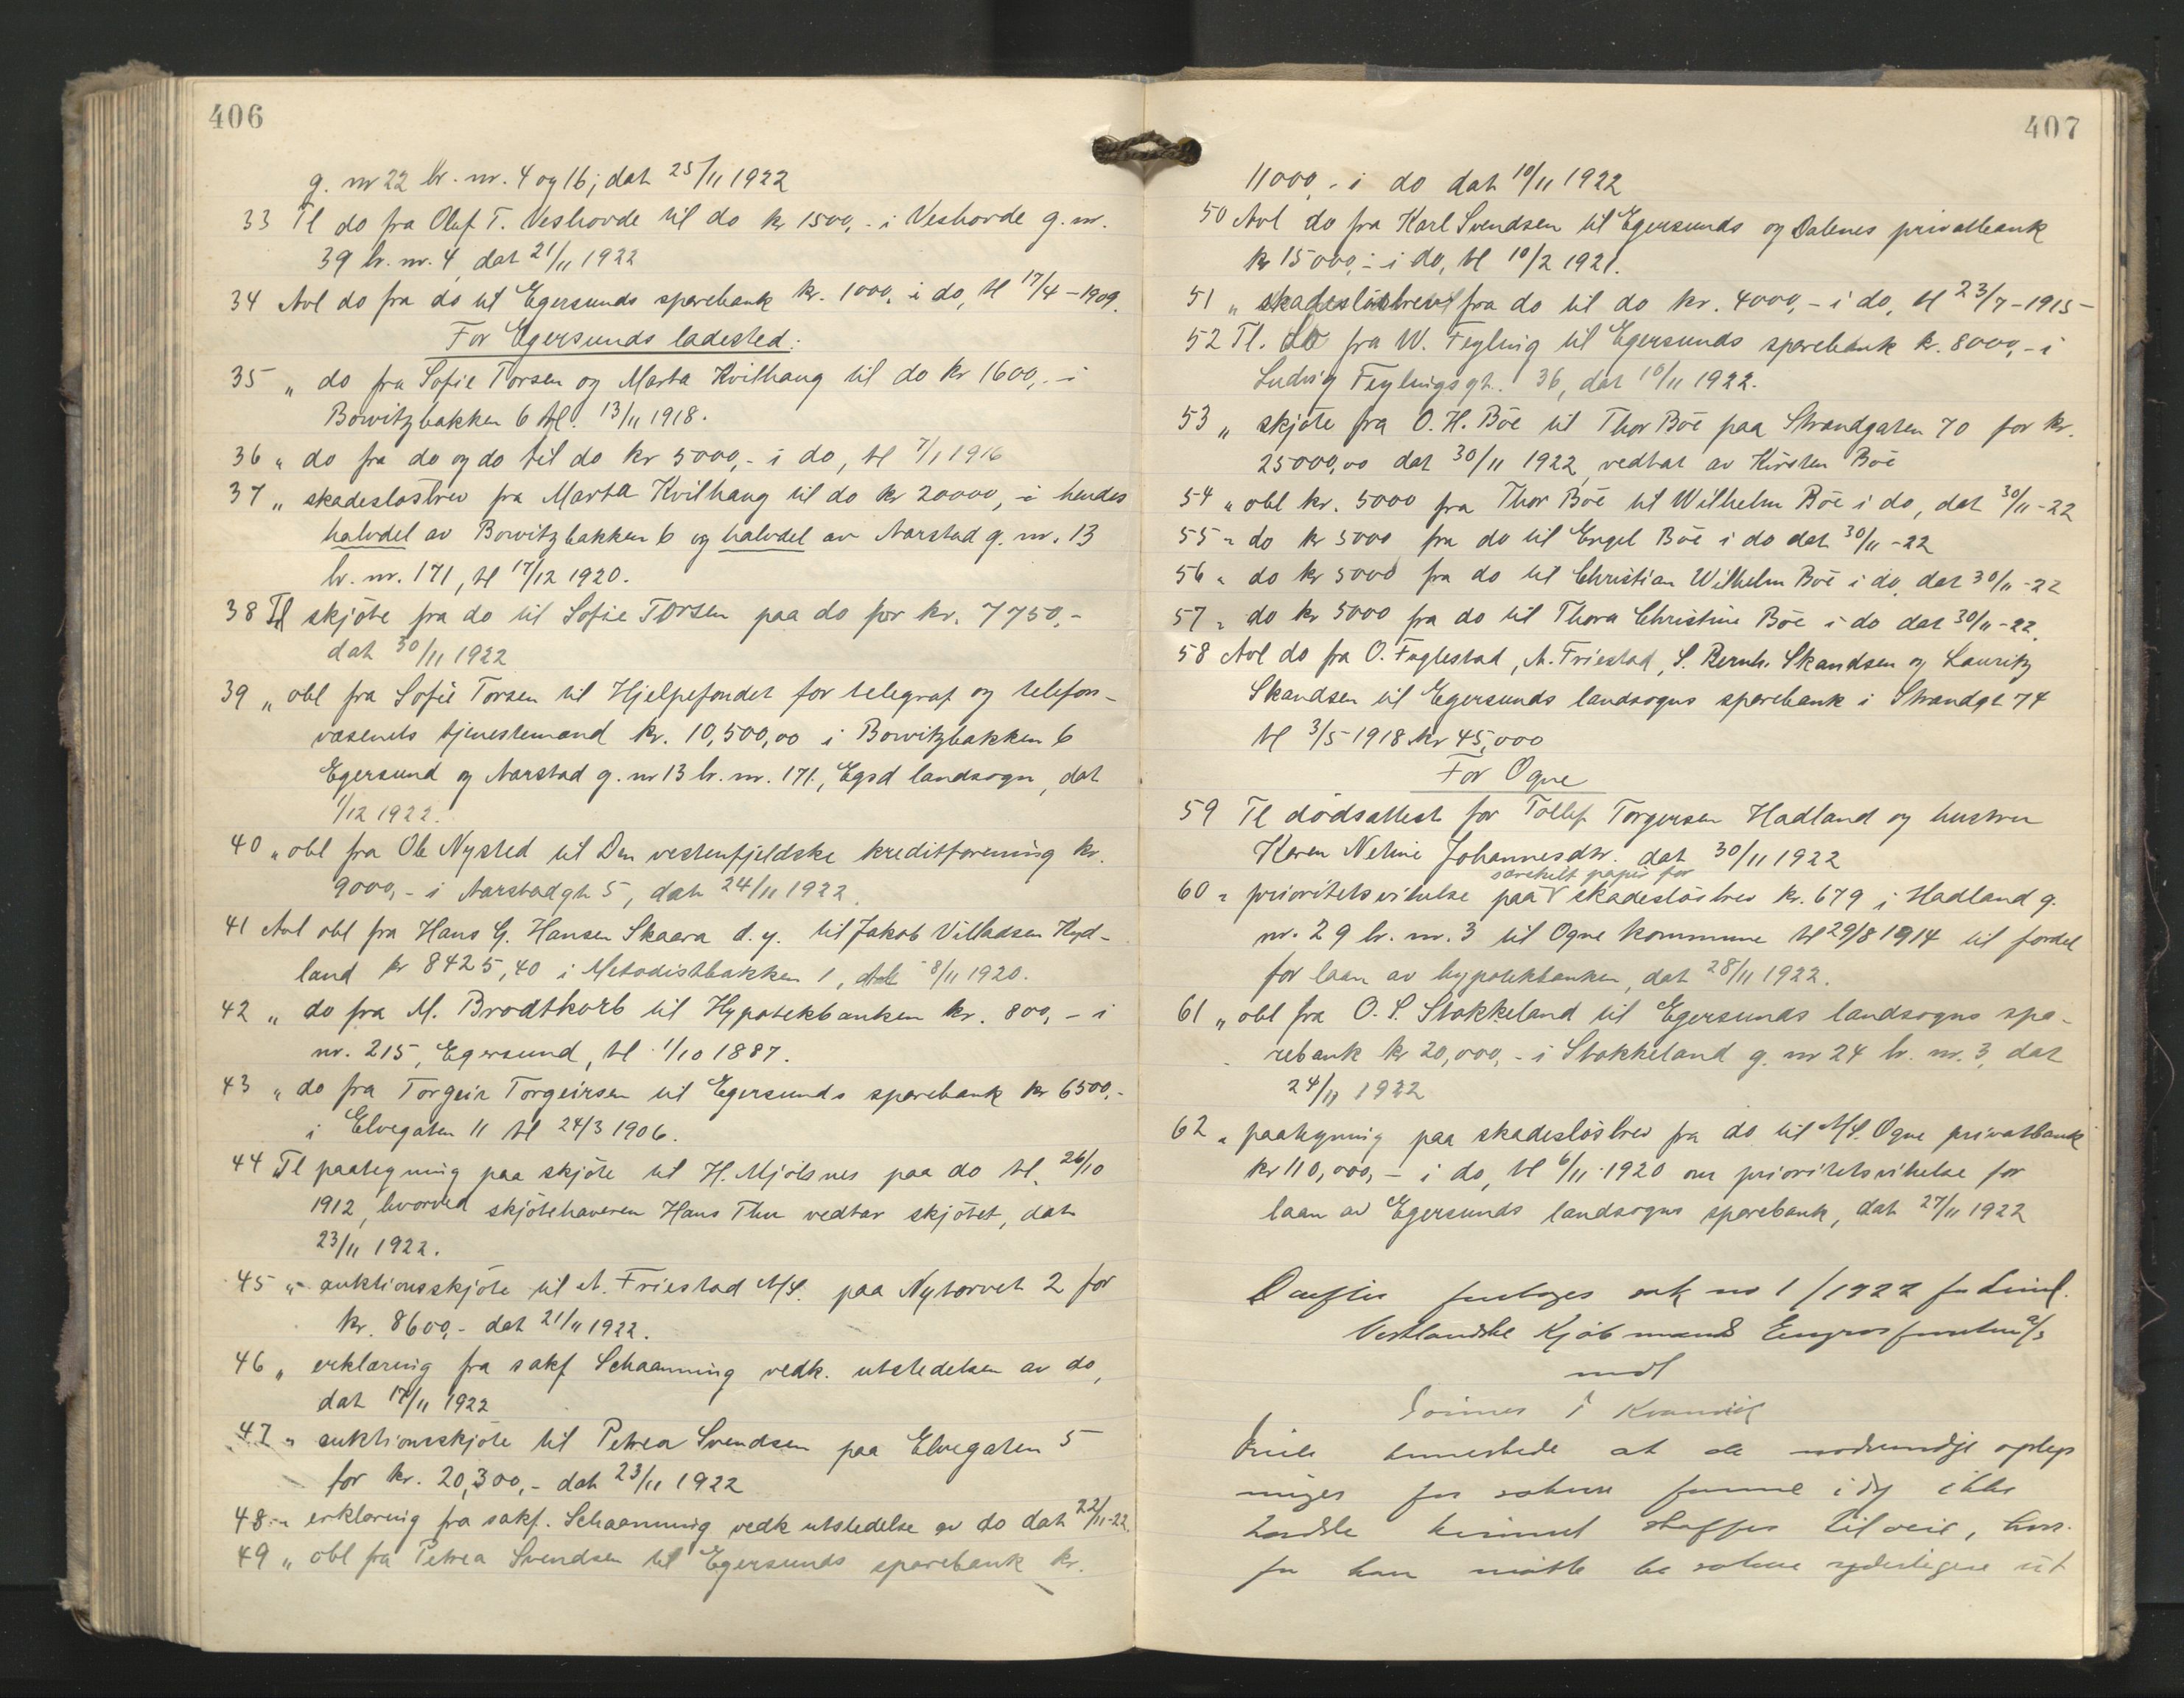 406
g. nr 22 br. nr. 4 og 16, dat 25/11 1922
33 Tl do fra Oluf T. Veshovde til do kr 1500,- i Veshovde g. nr.
39 br. nr. 4, dat 21/11 1922
34 Avl do fra do til Egersunds sparebank kr. 1000, i do, tl 17/4-1909.
For Egersunds ladested:
35 „ do fra Sofie Torsen og Marta Kvilhaug til do kr 1600,- i
Bowitzbakken 6 tl. 13/11 1918.
36 „ do fra do og do til do kr 5000,- i do, tl 7/1 1916
37 „ skadesløsbrev fra Marta Kvilhaug til do kr 20000,- i hendes
halvdel av Bowitzbakken 6 og halvdel av Aarstad g. nr. 13
br. nr. 171, tl 17/12 1920.
38 Tl skjöte fra do til Sofie Torsen paa do for kr. 7750,-
dat 30/11 1922
39 „ obl fra Sofie Torsen til Hjelpefondet for telegraf og telefon-
væsenets tjenestemænd kr. 10,500,00 i Bowitzbakken 6
Egersund og Aarstad g. nr 13 br. nr. 171, Egsd landsogn, dat
1/12 1922.
40 „ obl fra Ole Nysted til Den vestenfjeldske kreditforening kr.
9000,- i Aarstadgt 5, dat 24/11 1922.
41 Avl obl fra Hans G. Hansen Skaara d. y. til Jakob Villadsen Hyd-
land kr 8425,40 i Metodistbakken 1, 8/11 1920.
42 „ do fra M. Brodtkorb til Hypotekbanken kr. 800,- i
nr. 215, Egersund, tl 1/10 1887.
43 „ do fra Torgeir Torgeirsen til Egersunds sparebank kr 6500,-
i Elvegaten 11 tl 24/3 1906.
44 Tl paategning paa skjöte til H. Mjölsnes paa do tl. 26/10
1912, hvorved skjötehaveren Hans Thu vedtar skjötet, dat
23/11 1922.
45 „ auktionsskjöte til A. Friestad A/S. paa Nytorvet 2 for
kr. 8600,- dat 21/11 1922.
46 „ erklæring fra sakf Schaanning vedk. utstedelsen av do,
dat 17/11 1922
47 „ auktionsskjöte til Petrea Svendsen paa Elvegaten 5
for kr. 20,300,- dat 23/11 1922
48 „ erklæring fra sakf. Schaanning vedk utstedelse av do dat 22/11-22.
49 „ obl fra Petrea Svendsen til Egersunds sparebank kr.
407
11000,- i do dat 10/11 1922
50 Avl do fra Karl Svendsen til Egersunds og Dalenes privatbank
kr 15000,- i do, tl 10/2 1921.
51 „ skadeslösbrev fra do til do kr. 4000,- i do, tl 23/7-1915-
52 Tl. do fra W. Feyling til Egersunds sparebank kr. 8000,- i
Ludvig Feylingsgt. 36, dat 10/11 1922.
53 „ skjöte fra O. H. Böe til Thor Böe paa Strandgaten 70 for kr.
25000,00 dat 30/11 1922, vedtat av Kirsten Böe
54 „ obl kr. 5000 fra Thor Böe til Wilhelm Böe i do, dat 30/11-22
55 „ do kr 5000 fra do til Engel Böe i do dat 30/11-22
56 „ do kr 5000 fra do til Christian Wilhelm Böe i do, dat 30/11-22
57 „ do kr 5000 fra do til Thora Christine Böe i do dat 30/11-22.
58 Avl do fra O. Fuglestad, A. Friestad, S. Bernh. Skandsen og Lauritz
Skandsen til Egersunds landsogns sparebank i Strandgt 74
tl 3/5 1918 kr 45,000
For Ogne
59 Tl dödsattest for Tollef Torgersen Hadland og hustru
Karen Netine Johannesdtr. dat 30/11 1922
særskilt papir for
60 „ prioritetsvikelse paa skadeslösbrev kr. 679 i Hadland g.
nr. 29 br. nr. 3 til Ogne kommune tl 29/8 1914 til fordel
for laan av hypotekbanken, dat 28/11 1922.
61 „ obl fra O. S. Stokkeland til Egersunds landsogns spa-
rebank kr 20,000,- i Stokkeland g. nr 24 br. nr. 3, dat
24/11 1922
62 „ paategning paa skadeslösbrev fra do til A/S. Ogne privatbank
kr 110,000,- i do, tl 6/11 1920 om prioritetsvikelse for
laan av Egersunds landsogns sparebank, dat 27/11 1922
sak no 1/1922
Vestlandske Kjöbmænds Engrosforretn a/s
mot
at de
for ikke
skaffes tilveie,
han maatte yderligere ut